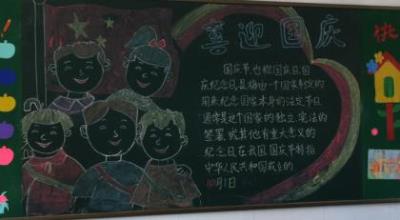 喜迎国庆
国庆节也被国庆日、国
庆纪念日是指由一个国家制定的
用来纪念国家本身的法定节日
通常是这个国家的独立、宪法的
签署或其他有重大意义的
纪念日在我国国庆节特指
中华人民共和国成立的
10月1日